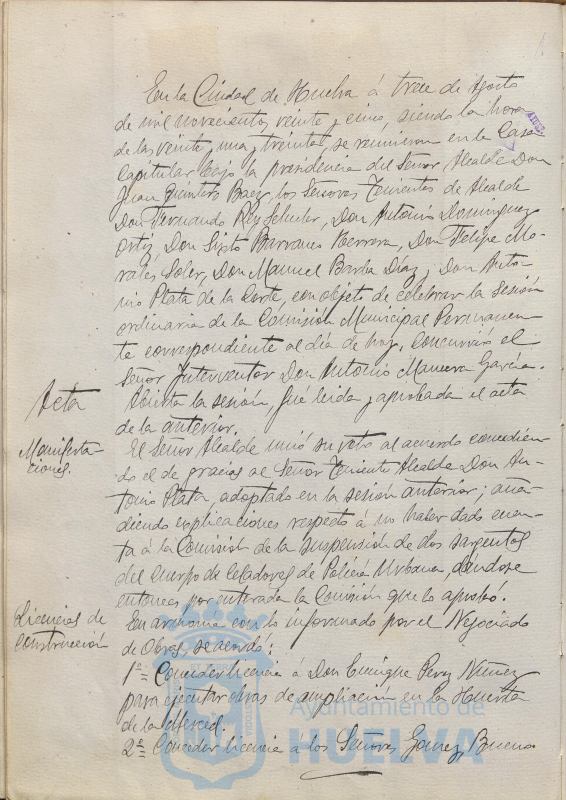 En la Ciudad de Huelva á trece de Agosto
de mil novecientos veinte y cinco, siendo la hora
de las veinte, una y treinta, se reunieron en la Casa
Capitular bajo la presidencia del Señor Alcalde Don
Juan Quintero Baez, los Señores Tenientes de Alcalde
Don Fernando Rey Don Antonio Dominguez
Ortiz, Don Sixto Barranco Herrera, Don Felipe Mo-
rales Soler, Don Manuel Barba Díaz y Don Anto-
nio Plata de la Corte, con objeto de celebrar la sesión
ordinaria de la Comisión Municipal Permanen-
te correspondiente al día de hoy. Concurrió el
Señor Interventor Don Antonio García.
Acta
Abierta la sesión, fué leida y aprobada el acta
de la anterior.
Manifesta-
ciones.
El Señor Alcalde unió su voto al acuerdo concedien-
do el de gracias al Señor Teniente Alcalde Don An-
tonio Plata, adoptado en la sesión anterior; aña-
diendo explicaciones respecto á no haber dado cuen-
ta á la Comisión de la suspensión de dos sargentos
del Cuerpo de Celadores de Policía Urbana, dandose
entonces por enterada la Comisión que lo aprobó.
Licencias de
Construcción
En armonia con lo informado por el Negociado
de Obras, se acordó:
1º= Conceder licencia á Don Enrique Perez Nuñez
para ejecutar obras de ampliación en la Huerta
de la Merced.
2º= Conceder licencia á los Señores Gomez, Bueno
Ayuntamiento de
HUELVA